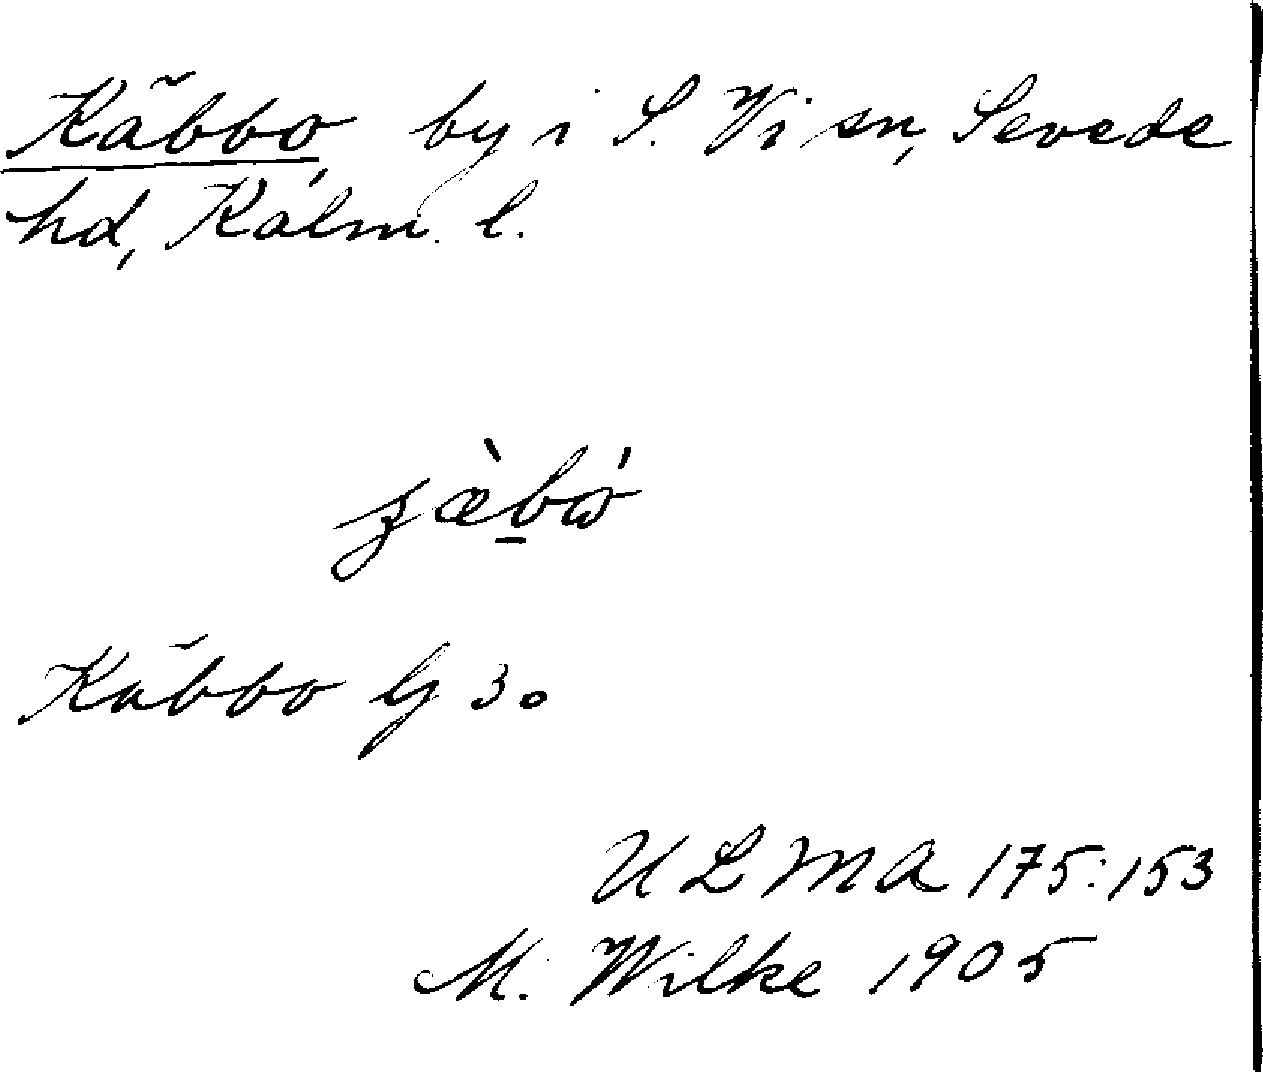 Käbbo, by i S. Vi sn, Sevede
hd, Kalm. l.
Käbbo G 30
ULMA 175:153
M. Wilke 1905